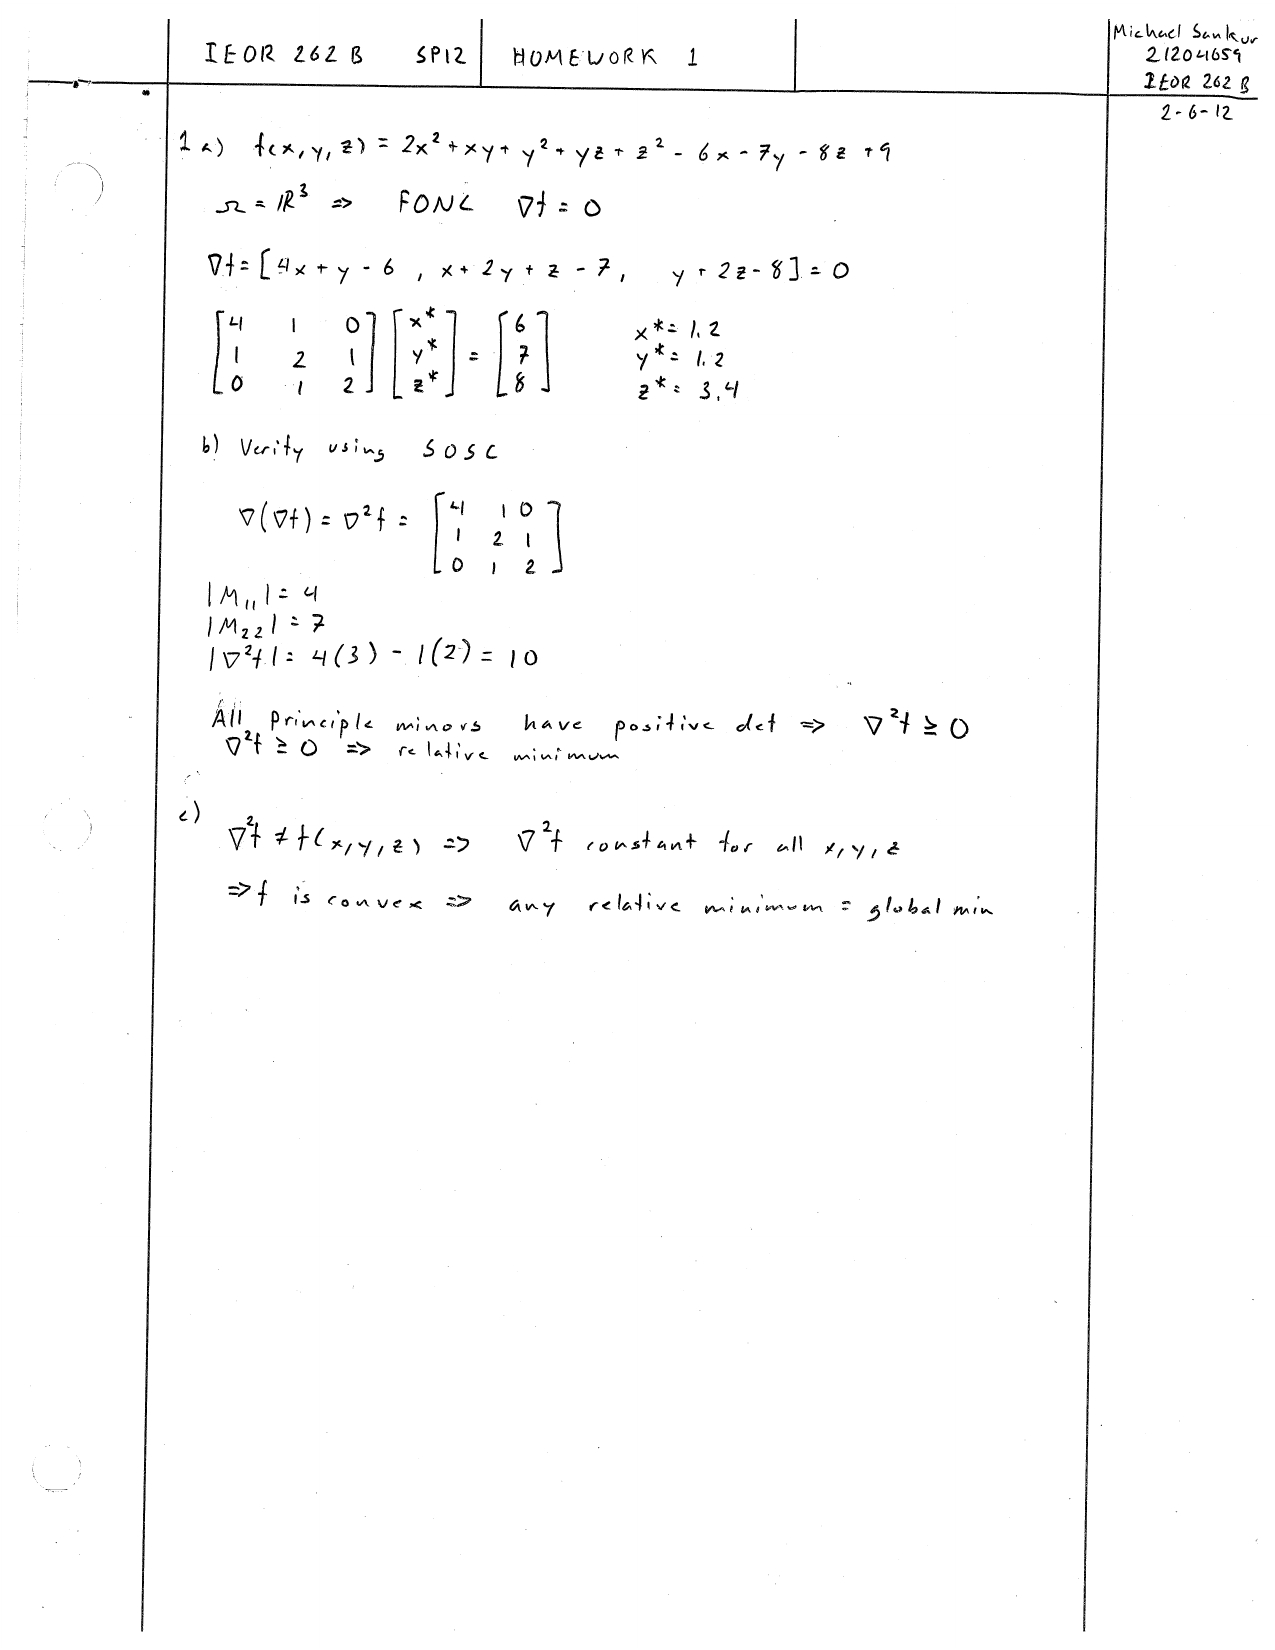 IEOR 262 B SP12 HOMEWORK 1
Michael Sankur
21204659
IEOR 262 B
2-6-12
1 a) f(x, y, z) = 2x² + xy + y² + yz + z² - 6x - 7y - 8z + 9
Ω = ℝ³ ⇒ FONC ∇f = 0
∇f = [4x + y - 6 , x + 2y + z - 7, y + 2z - 8] = 0
[4 1 0] [x*] = [6] x* = 1.2
[1 2 1] [y*] [7] y* = 1.2
[0 1 2] [z*] [8] z* = 3.4
b) Verify using SOSC
∇(∇f) = ∇²f = [4 1 0]
[1 2 1]
[0 1 2]
|M₁₁| = 4
|M₂₂| = 7
|∇²f| = 4(3) - 1(2) = 10
All principle minors have positive det ⇒ ∇²f ≥ 0
∇²f ≥ 0 ⇒ relative minimum
c)
∇²f ≠ f(x, y, z) ⇒ ∇²f constant for all x, y, z
⇒ f is convex ⇒ any relative minimum = global min